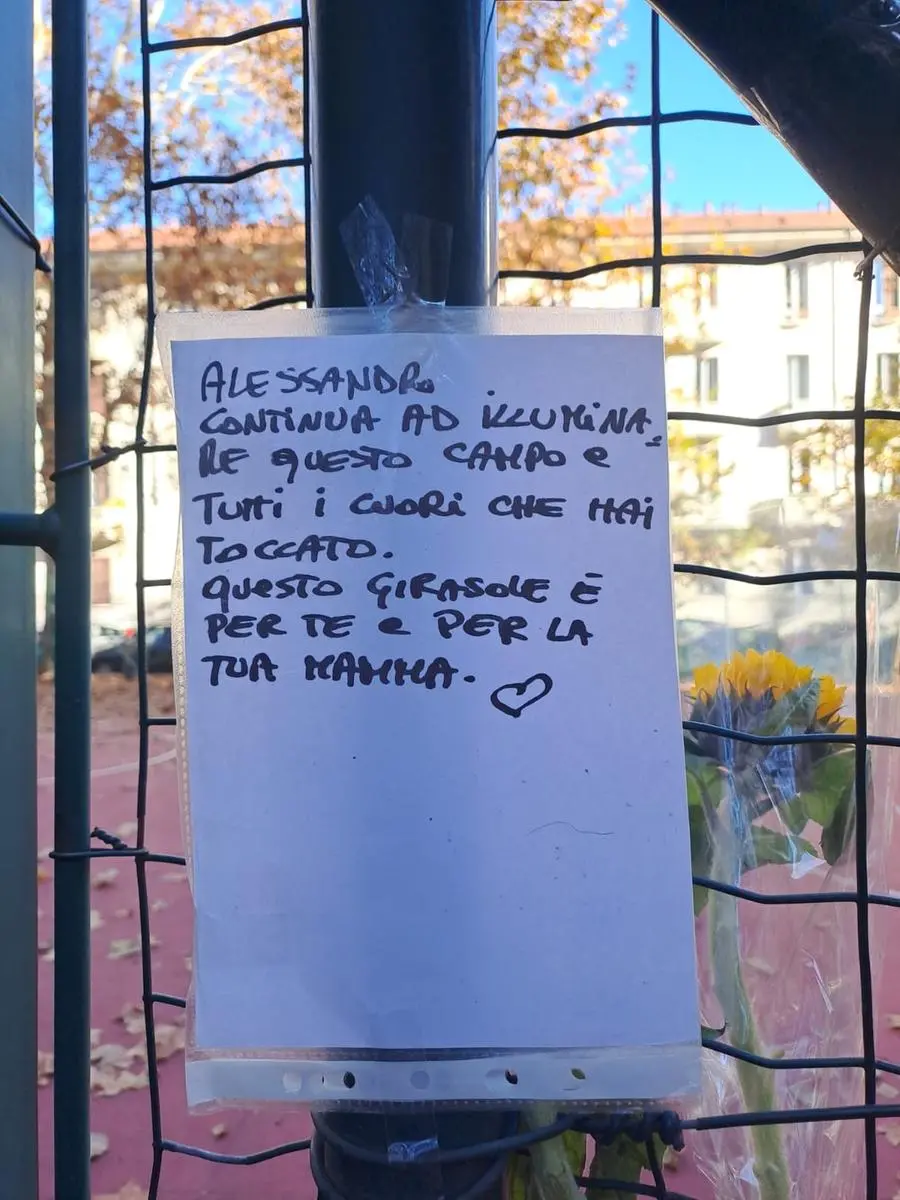 ALESSANDRO
CONTINUA AD ILLUMINA-
RE QUESTO CAMPO e
TUTTI i CUORI CHE HAI
TOCCATO.
QUESTO GIRASOLE È
PER TE e PER LA
TUA MAMMA.